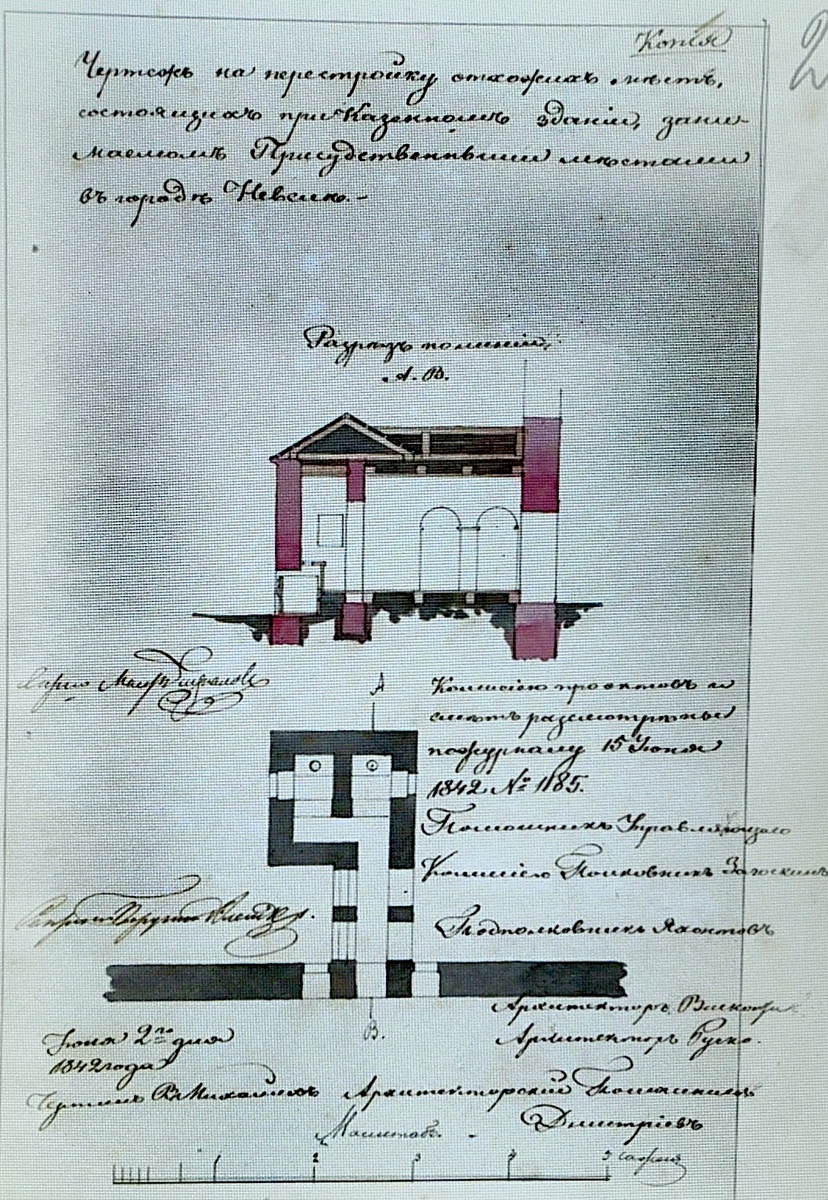 Копія
Чертежъ на перестройку отхожихъ мѣстъ,
состоящихъ при Казенномъ зданіи, зани-
маемомъ Присудственными мѣстами
въ городѣ Невелѣ.-
Разрѣзъ по линіи
А. В.
А
Комисіею проэктовъ и
смѣтъ разсмотрѣны
по журналу 15 Іюня
1842 № 1185.
Помошникъ Управляющаго
Комисіею Полковникъ Загоскинъ
Подполковникъ Яхонтовъ
Архитекторъ
Архитекторъ Руско.
В.
Іюня 2го дня
1842 года
Чертилъ Михайловъ Архитекторскій Помошникъ
Дмитріевъ
Масштабъ.
1 2 3 4 5 сажен